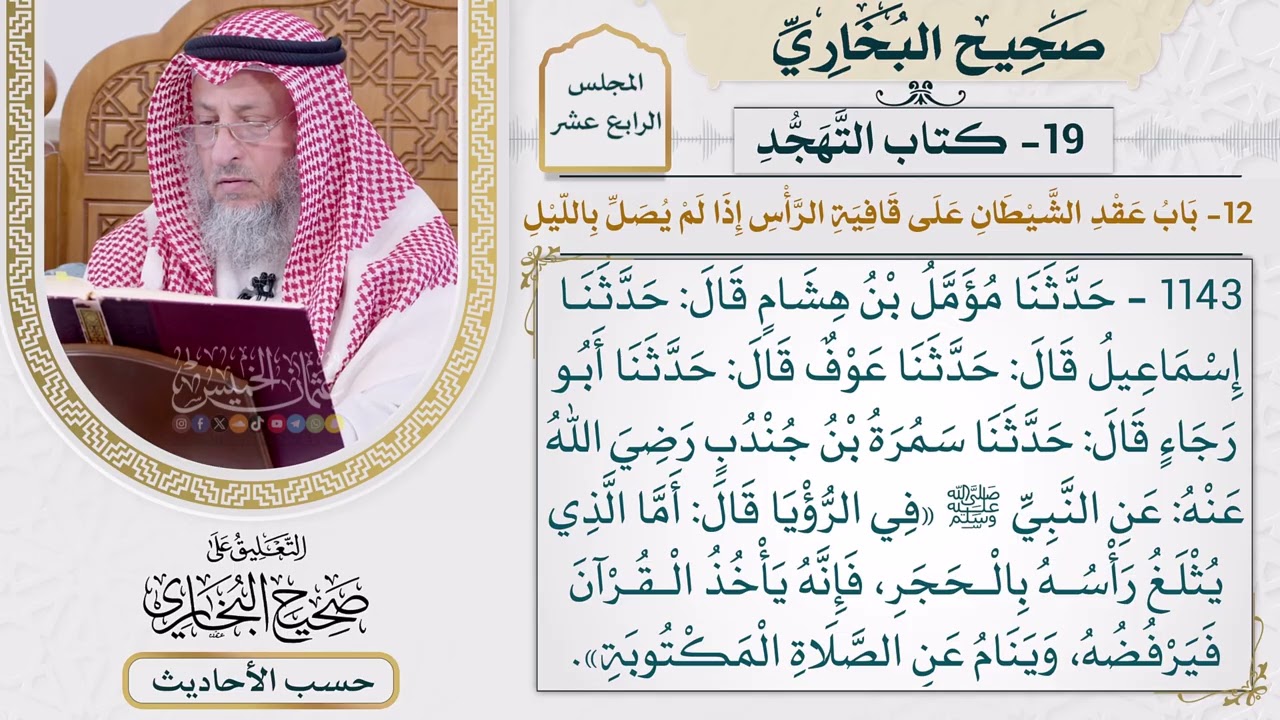 صَحِيح البُخَارِيِّ
19- كتاب التَّهَجُّدِ
المجلس
الرابع عشر
12- بَابُ عَقْدِ الشَّيْطَانِ عَلَى قَافِيَةِ الرَّأْسِ إِذَا لَمْ يُصَلِّ بِاللَّيْلِ
1143 - حَدَّثَنَا مُؤَمَّلُ بْنُ هِشَامٍ قَالَ: حَدَّثَنَا
إِسْمَاعِيلُ قَالَ: حَدَّثَنَا عَوْفٌ قَالَ: حَدَّثَنَا أَبُو
رَجَاءٍ قَالَ: حَدَّثَنَا سَمُرَةُ بْنُ جُنْدُبٍ رَضِيَ اللهُ
عَنْهُ: عَنِ النَّبِيِّ ﷺ «فِي الرُّؤْيَا قَالَ: أَمَّا الَّذِي
يُثْلَغُ رَأْسُهُ بِالْحَجَرِ، فَإِنَّهُ يَأْخُذُ الْقُرْآنَ
فَيَرْفُضُهُ، وَيَنَامُ عَنِ الصَّلَاةِ الْمَكْتُوبَةِ».
عثمان الخميس
التَّعْلِيقُ عَلَى
صَحِيحُ البُخَارِيِّ
حسب الأحاديث